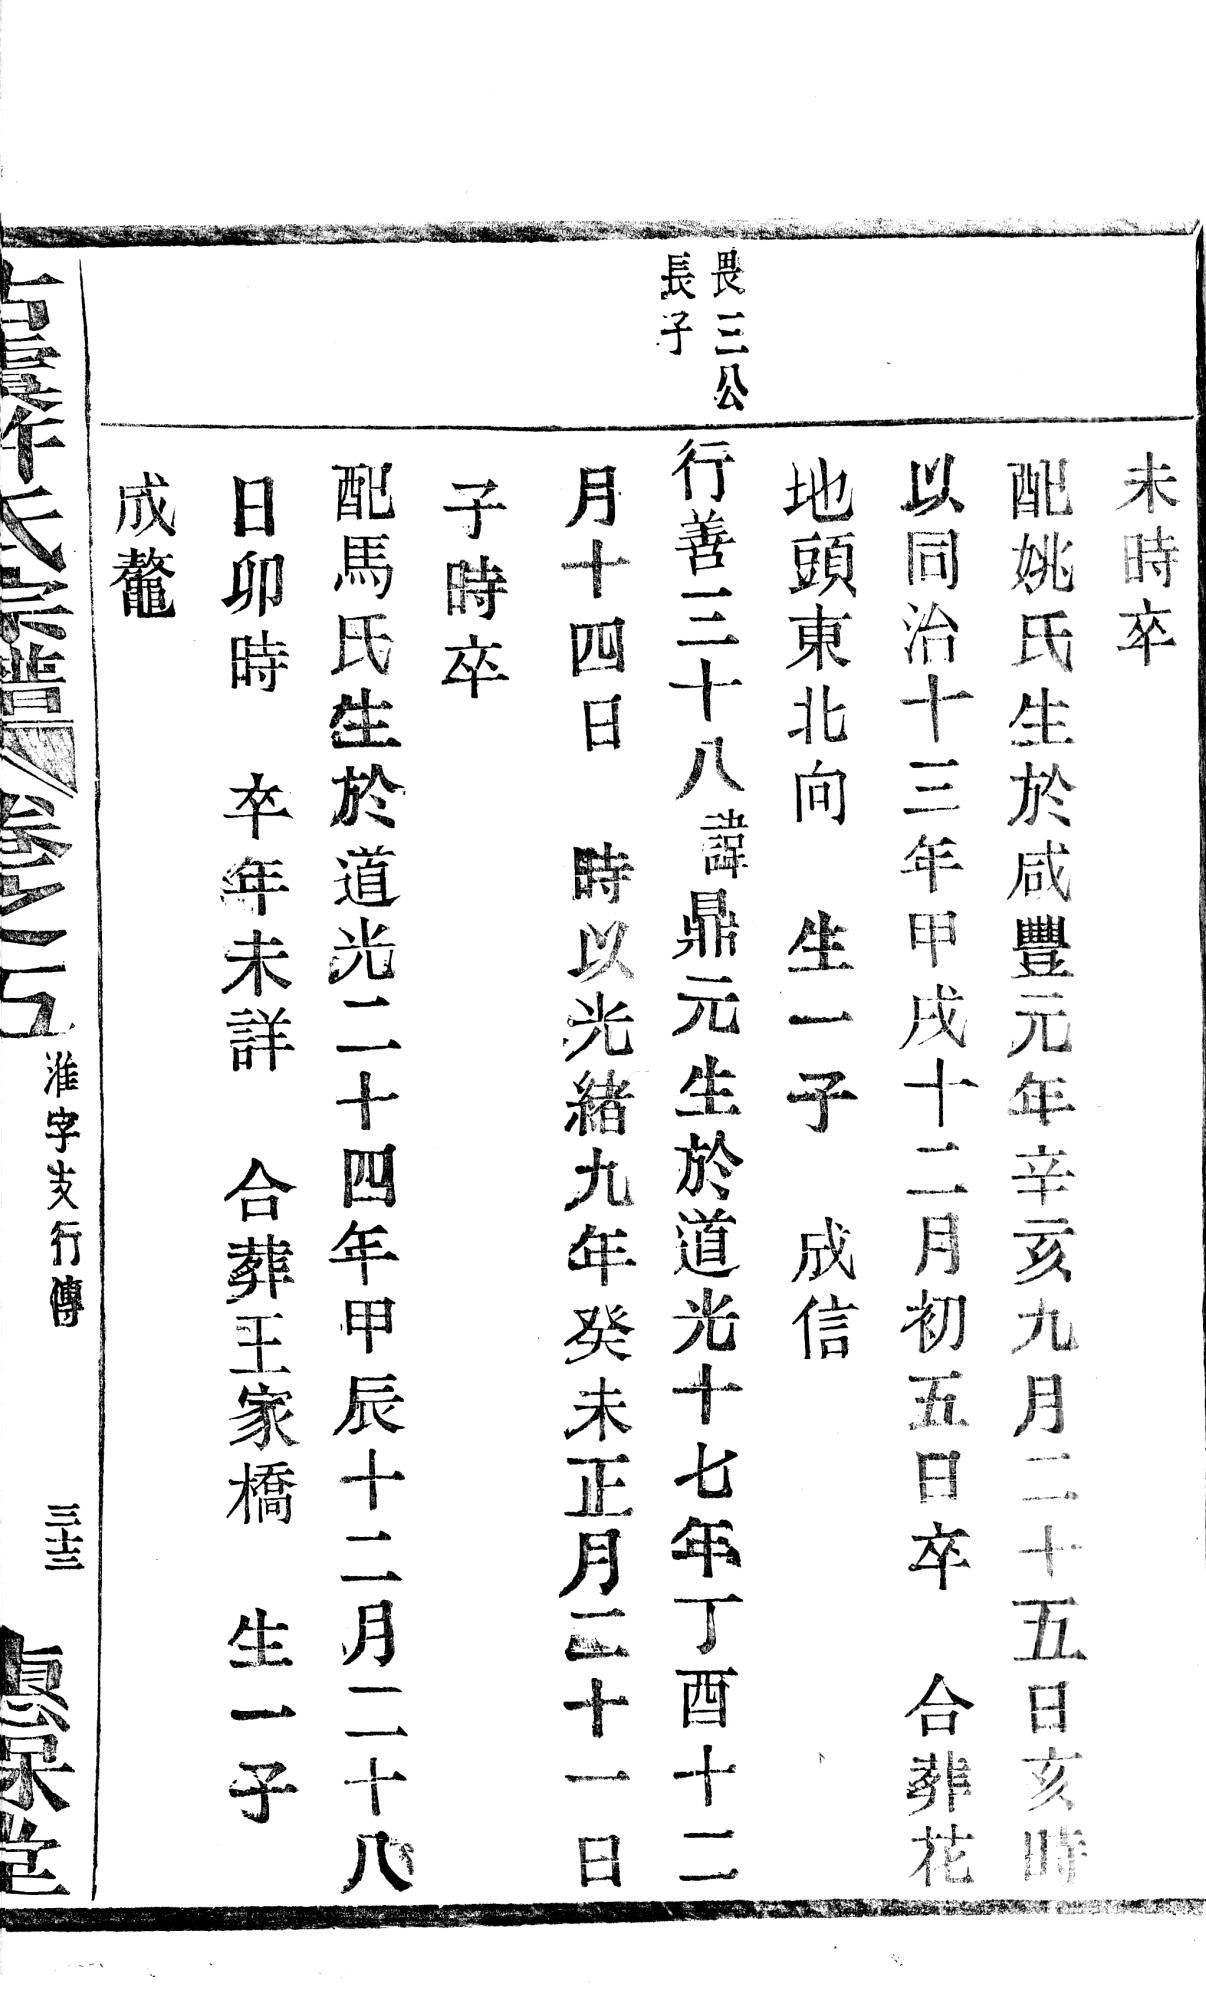 未時卒
配姚氏生於咸豐元年辛亥九月二十五日亥時
以同治十三年甲戌十二月初五日卒 合葬花
地頭東北向 生一子 成信
畏三公
長子
行善三十八諱鼎元生於道光十七年丁酉十二
月十四日 時以光緒九年癸未正月二十一日
子時卒
配馬氏生於道光二十四年甲辰十二月二十八
日卯時 卒年未詳 合葬王家橋 生一子
成鼇
古虞許氏宗譜 卷之五 淮字支行傳 三十三